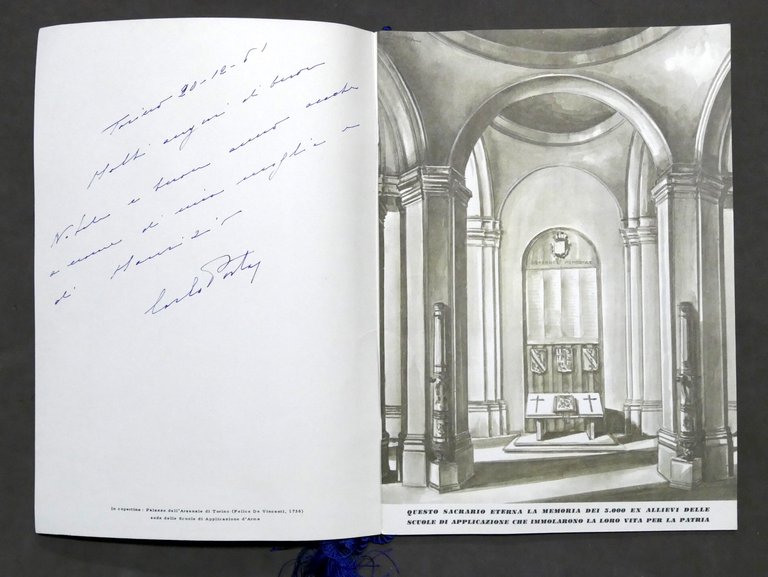 Torino 20-12-61
Molti auguri di buon
Natale e buon anno anche
a nome di mia moglie e
di Maurizio
Carlo
In copertina: Palazzo dell'Arsenale di Torino (Felice De Vincenti, 1736)
sede delle Scuole di Applicazione d'Arma
QUESTO SACRARIO ETERNA LA MEMORIA DEI 5.000 EX ALLIEVI DELLE
SCUOLE DI APPLICAZIONE CHE IMMOLARONO LA LORO VITA PER LA PATRIA